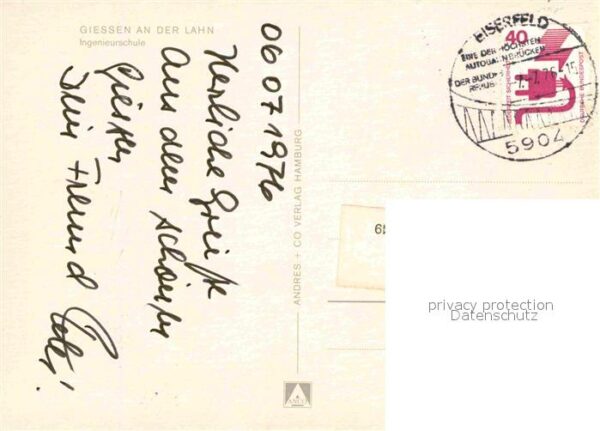 GIESSEN AN DER LAHN
Ingenieurschule
06 07 1976
Herzliche Grüße
Aus dem schönen
Gießen
Dein Freund Peter!
ANDRES + CO VERLAG HAMBURG
EISERFELD
EINE DER HÖCHSTEN
AUTOBAHNBRÜCKEN
DER BUNDES
REPUB
-7.-7.76-15
5904
40
DEUTSCHE BUNDESPOST
privacy protection
Datenschutz